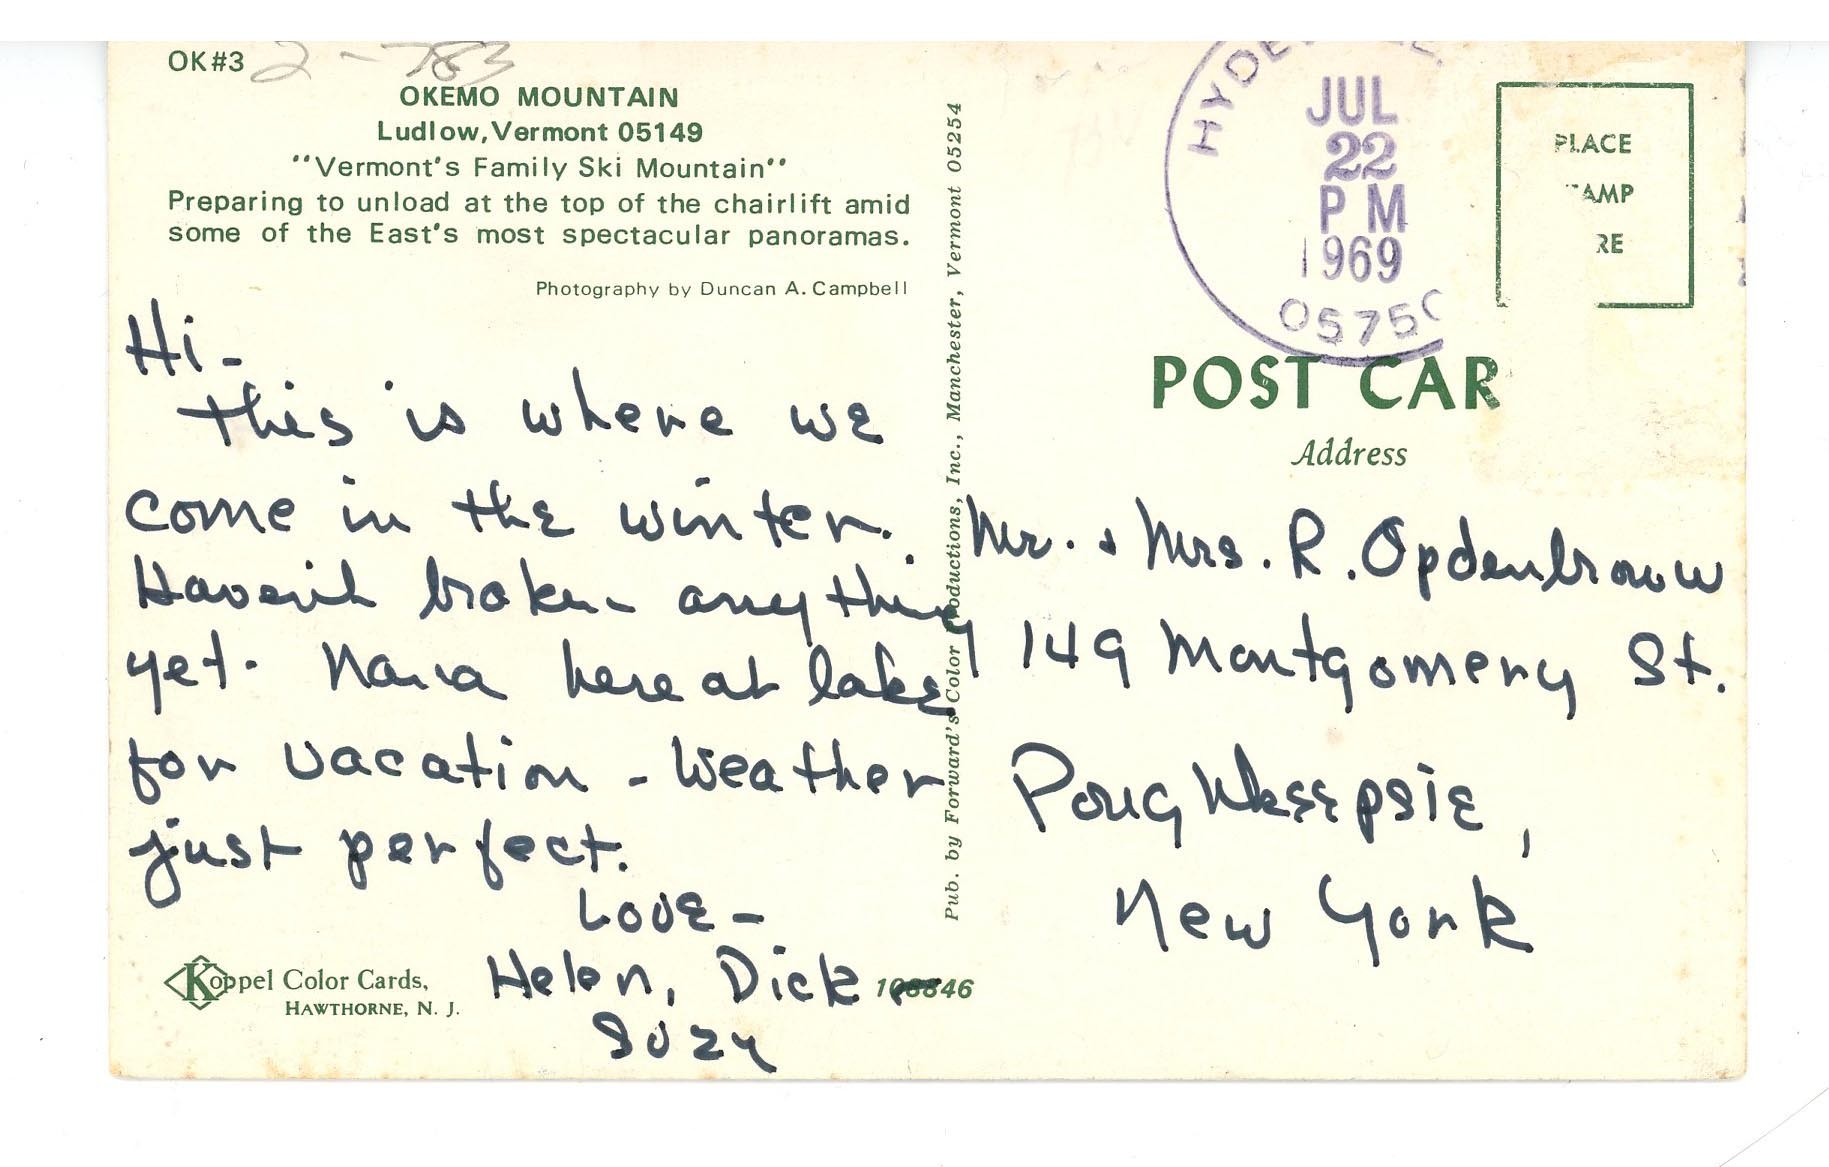 OK#3 2-783
OKEMO MOUNTAIN
Ludlow, Vermont 05149
"Vermont's Family Ski Mountain"
Preparing to unload at the top of the chairlift amid
some of the East's most spectacular panoramas.
Photography by Duncan A. Campbell
Hi-
This is where we
come in the winter.
Haven't broken anything
yet. Nana here at lake
for vacation - Weather
just perfect.
Love -
Helen, Dick
Suzy
Koppel Color Cards,
HAWTHORNE, N. J.
108846
Pub. by Forward's Color Productions, Inc., Manchester, Vermont 05254
JUL
22
PM
1969
0575
PLACE
AMP
RE
POST CAR
Address
Mr. & Mrs. R. Opdenbrouw
149 Montgomery St.
Poughkeepsie,
New York